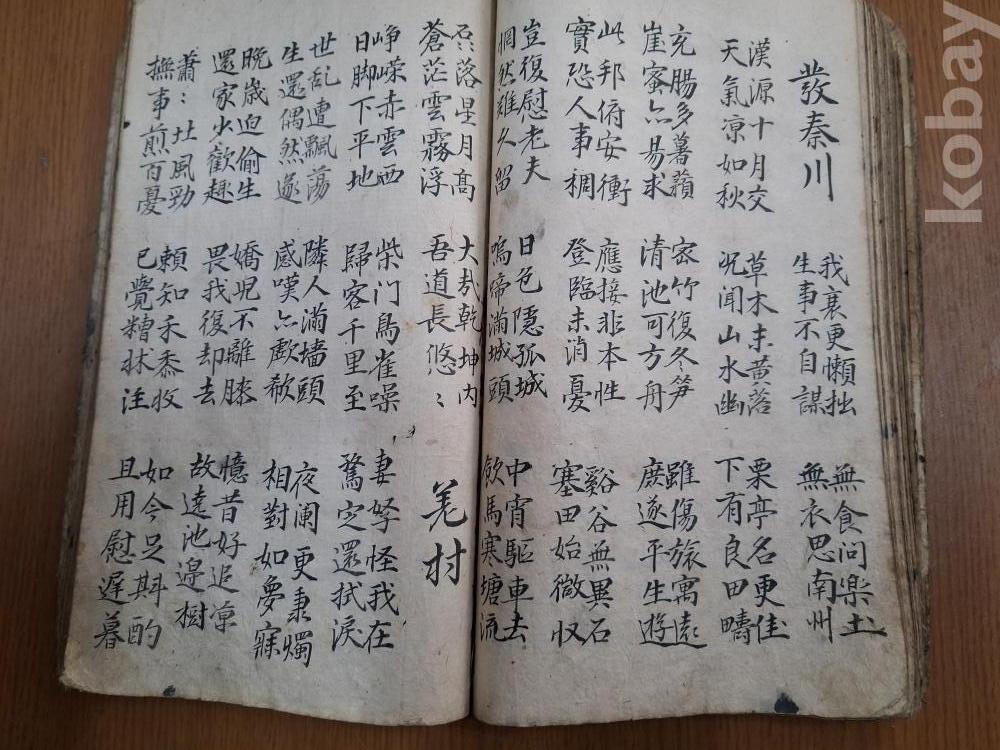 發秦川
我衰更懶拙
生事不自謀
無食問楽土
無衣思南州
漢源十月交
天氣凉如秋
草木未黃落
况聞山水幽
栗亭名更佳
下有良田疇
充腸多薯蕷
崖蜜亦易求
密竹復冬笋
清池可方舟
雖傷旅寓遠
廣遂平生遊
此邦俯安衝
實恐人事稠
應接非本性
登臨未消憂
谿谷無異石
塞田始微収
豈復慰老夫
惘然難久留
日色隱孤城
嗚啼滿城頭
中宵驅車去
飮馬寒塘流
落星月高
蒼茫雲霧浮
大哉乾坤内
吾道長悠〻
羌村
崢嶸赤雲西
日脚下平地
柴门鳥雀噪
歸客千里至
妻孥怪我在
驚定還拭淚
世乱遭飄蕩
生還偶然遂
隣人滿墻頭
感嘆亦歔欷
夜阑更秉燭
相對如夢寐
晚歲迫偷生
還家少歡趣
嬌兒不離膝
畏我復却去
憶昔好追凉
故遶池邊樹
蕭〻北風勁
撫事煎百憂
賴知禾黍收
已覺糟牀注
如今足斟酌
且用慰遲暮
kobay